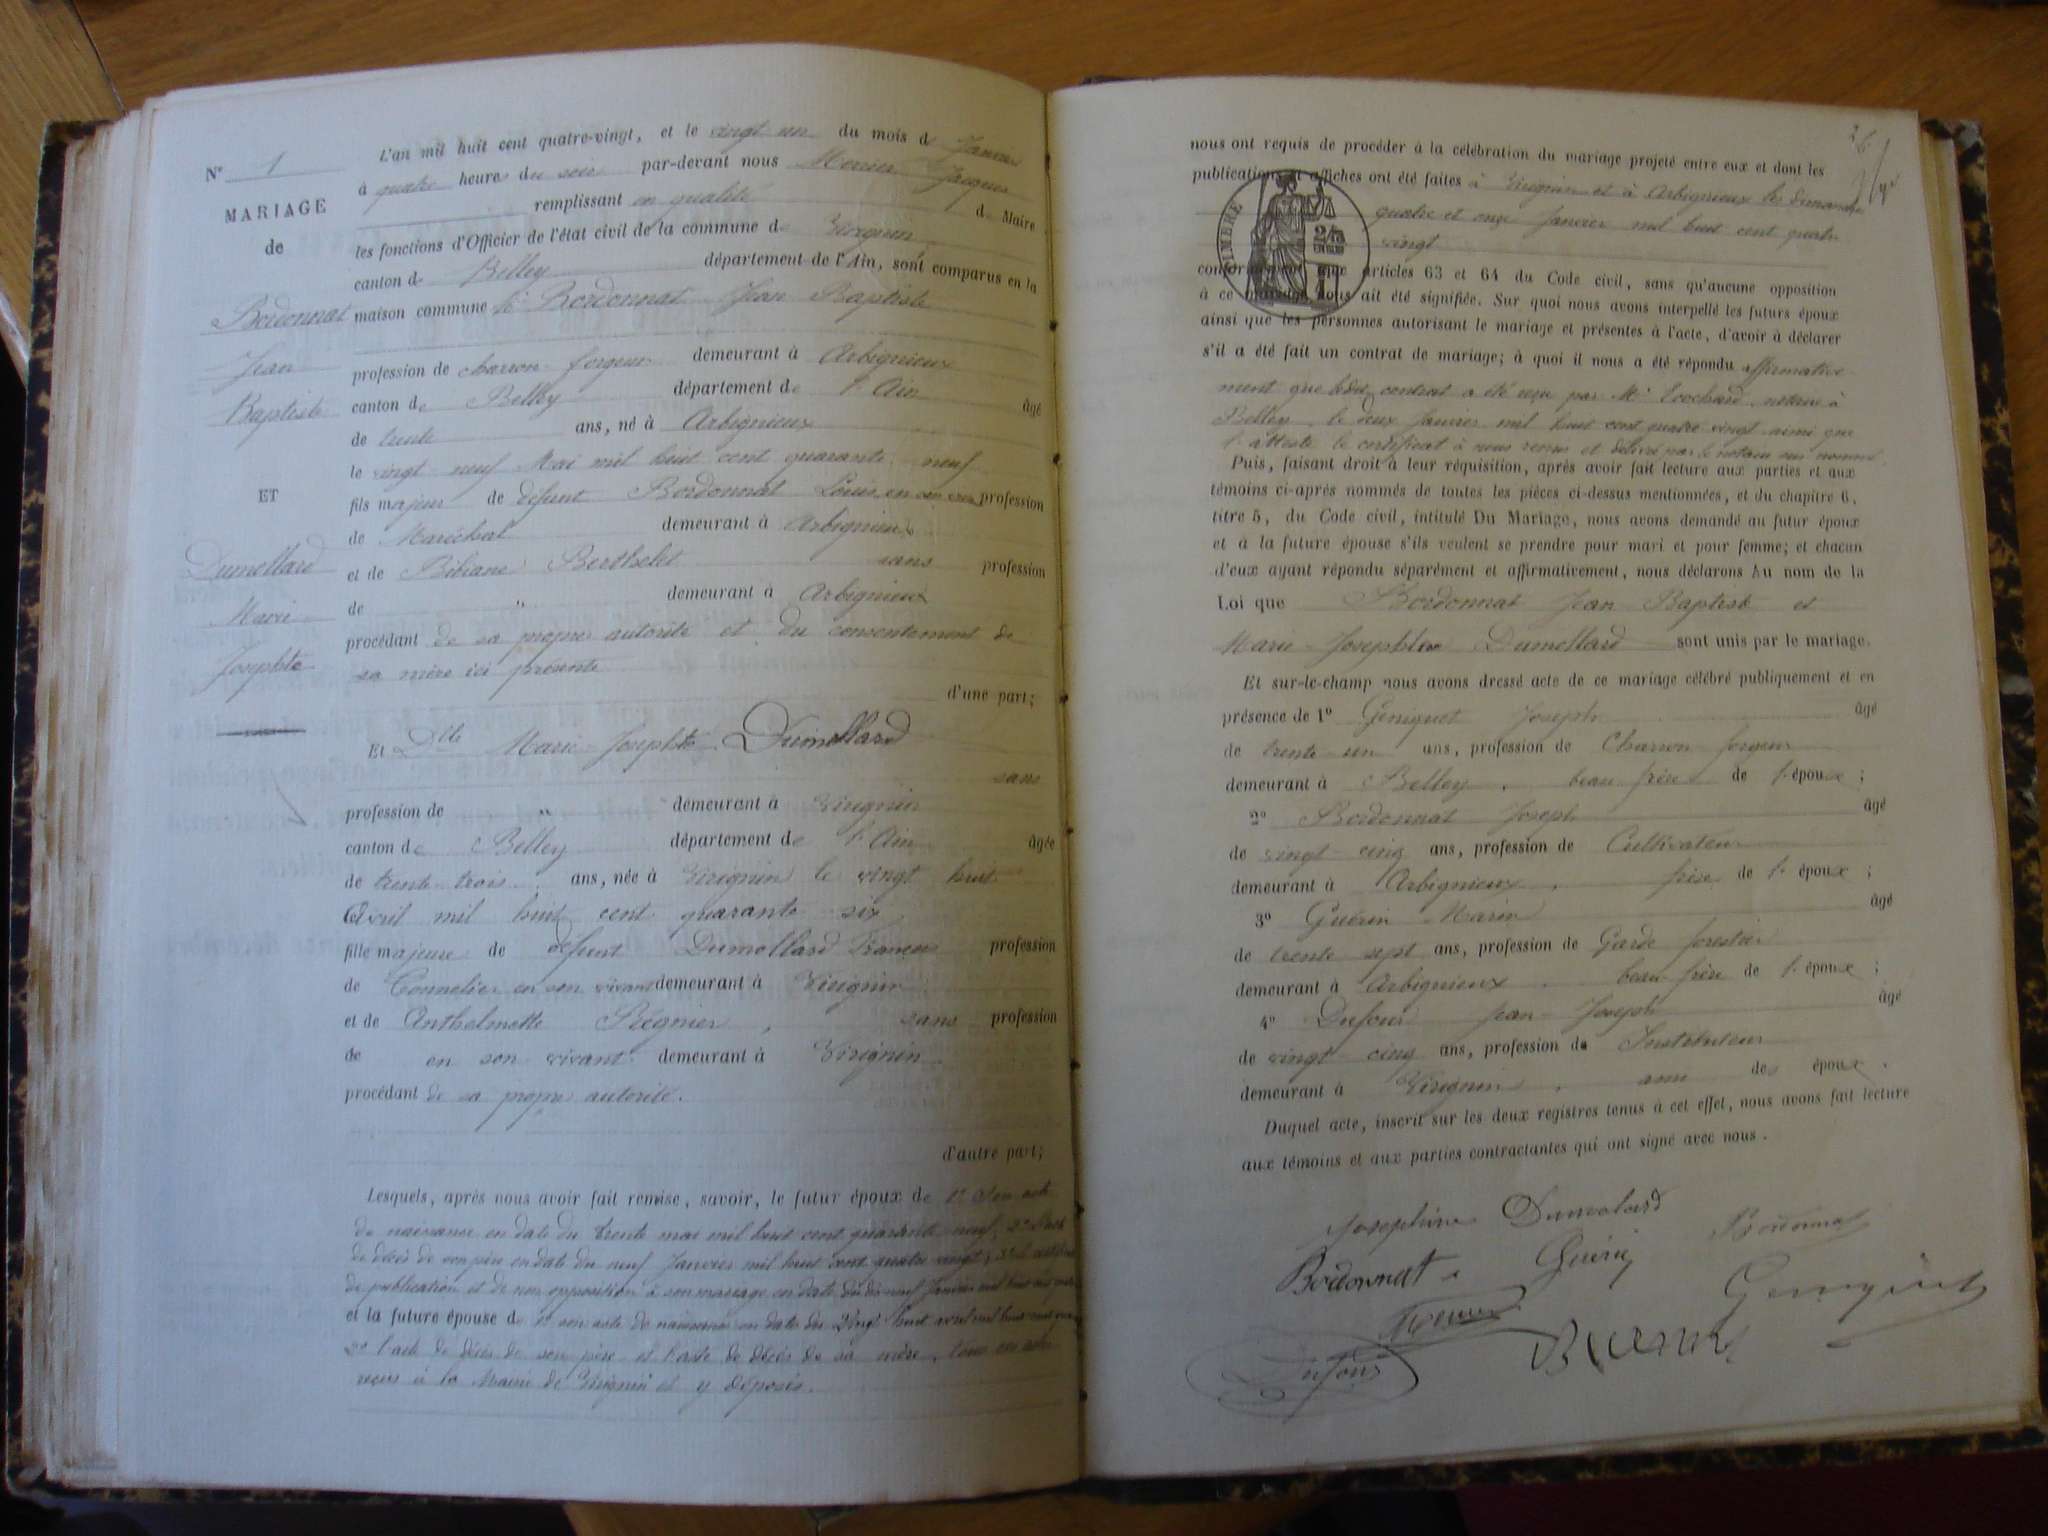 N° 1
MARIAGE
de
Bordonnat
Jean
Baptiste
ET
Dumollard
Marie
Josephte
L'an mil huit cent quatre-vingt, et le vingt un du mois d Janvier
à quatre heures du soir par-devant nous Mercier Jacques
remplissant en qualité de Maire
les fonctions d'Officier de l'état civil de la commune de Virignin
canton de Belley département de l'Ain, sont comparus en la
maison commune Bordonnat Jean Baptiste
profession de charron forgeur demeurant à Arbignieux
canton de Belley département de l'Ain âgé
de trente ans, né à Arbignieux
le vingt neuf Mai mil huit cent quarante neuf
fils majeur de défunt Bordonnat Louis, en son vivant profession
de Maréchal demeurant à Arbignieux
et de Bibiane Berthelet sans profession
de " demeurant à Arbignieux
procédant de sa propre autorité et du consentement de
sa mère ici présente
d'une part;
Et Dlle Marie-Josephte Dumollard
sans
profession de " demeurant à Virignin
canton de Belley département de l'Ain âgée
de trente trois ans, née à Virignin le vingt huit
Avril mil huit cent quarante six
fille majeure de défunt Dumollard profession
de Tonnelier en son vivant demeurant à Virignin
et de Anthelmette Régnier, sans profession
de en son vivant demeurant à Virignin
procédant de sa propre autorité.
d'autre part;
Lesquels, après nous avoir fait remise, savoir, le futur époux de 1° son acte
de naissance en date du trente mai mil huit cent quarante neuf; 2° l'acte
de décès de son père en date du neuf Janvier mil huit cent quatre vingt; 3° le certificat
de publication et de non opposition à son mariage en date du dix neuf Janvier mil huit cent
et la future épouse de 1° son acte de naissance en date du vingt huit avril mil huit cent
2° l'acte de décès de son père et l'acte de décès de sa mère, tous
reçus à la Mairie de Virignin et y déposés.
nous ont requis de procéder à la célébration du mariage projeté entre eux et dont les
publications et affiches ont été faites à Virignin et à Arbignieux les dimanches
quatre et onze Janvier mil huit cent quatre
vingt
TIMBRE
conformément aux articles 63 et 64 du Code civil, sans qu'aucune opposition
à ce mariage nous ait été signifiée. Sur quoi nous avons interpellé les futurs époux
ainsi que les personnes autorisant le mariage et présentes à l'acte, d'avoir à déclarer
s'il a été fait un contrat de mariage; à quoi il nous a été répondu affirmative-
ment que ledit contrat a été reçu par Me notaire à
Belley, le deux Janvier mil huit cent quatre vingt ainsi que
l'atteste le certificat à nous remis et délivré par le notaire sus nommé.
Puis, faisant droit à leur réquisition, après avoir fait lecture aux parties et aux
témoins ci-après nommés de toutes les pièces ci-dessus mentionnées, et du chapitre 6,
titre 5, du Code civil, intitulé Du Mariage, nous avons demandé au futur époux
et à la future épouse s'ils veulent se prendre pour mari et pour femme; et chacun
d'eux ayant répondu séparément et affirmativement, nous déclarons Au nom de la
Loi que Bordonnat Jean Baptiste et
Marie-Josephte Dumollard sont unis par le mariage.
Et sur-le-champ nous avons dressé acte de ce mariage célébré publiquement et en
présence de 1° Geniquet Joseph âgé
de trente un ans, profession de Charron forgeur
demeurant à Belley, beau frère de l'époux;
2° Bordonnat Joseph âgé
de vingt cinq ans, profession de Cultivateur
demeurant à Arbignieux, frère de l'époux;
3° Guérin Marin âgé
de trente sept ans, profession de Garde forestier
demeurant à Arbignieux, beau frère de l'époux;
4° Dufour Jean-Joseph âgé
de vingt cinq ans, profession de Instituteur
demeurant à Virignin, ami des époux.
Duquel acte, inscrit sur les deux registres tenus à cet effet, nous avons fait lecture
aux témoins et aux parties contractantes qui ont signé avec nous.
Josephine Dumolard Bordonnat
Bordonnat Guérin
Geniquet
Dufour